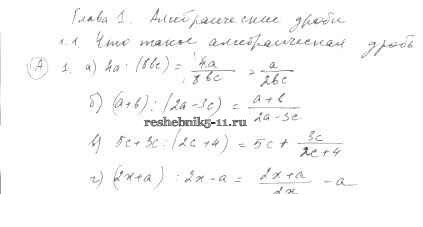 Глава 1. Алгебраические дроби
1.1 Что такое алгебраическая дробь
А 1. а) 4a : (8bc) = 4a/8bc = a/2bc
б) (a+b) : (2a-3c) = a+b/2a-3c
reshebnik5-11.ru
в) 5c+3c : (2c+4) = 5c + 3c/2c+4
г) (2x+a) : 2x-a = 2x+a/2x - a